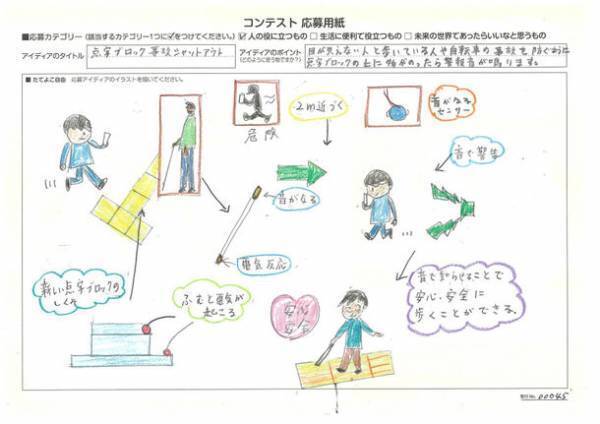 コンテスト 応募用紙
■応募カテゴリー(該当するカテゴリー1つに✓をつけてください。) ☑人の役に立つもの □生活に便利で役立つもの □未来の世界であったらいいなと思うもの
アイディアのタイトル
点字ブロック事故シャットアウト
アイディアのポイント
(どのように使う物ですか?)
目が見えない人と歩いている人や自転車の事故を防ぐために
点字ブロックの上に物がのったら警報音が鳴ります。
■たてよこ自由 応募アイディアのイラストを描いてください。
危険
2m近づく
音がなる
センサー
音で警告
音がなる
電気反応
新しい点字ブロックの
しくみ
ふむと電気が
起こる
安心
安全
音で知らせることで
安心・安全に
歩くことができる。
00045